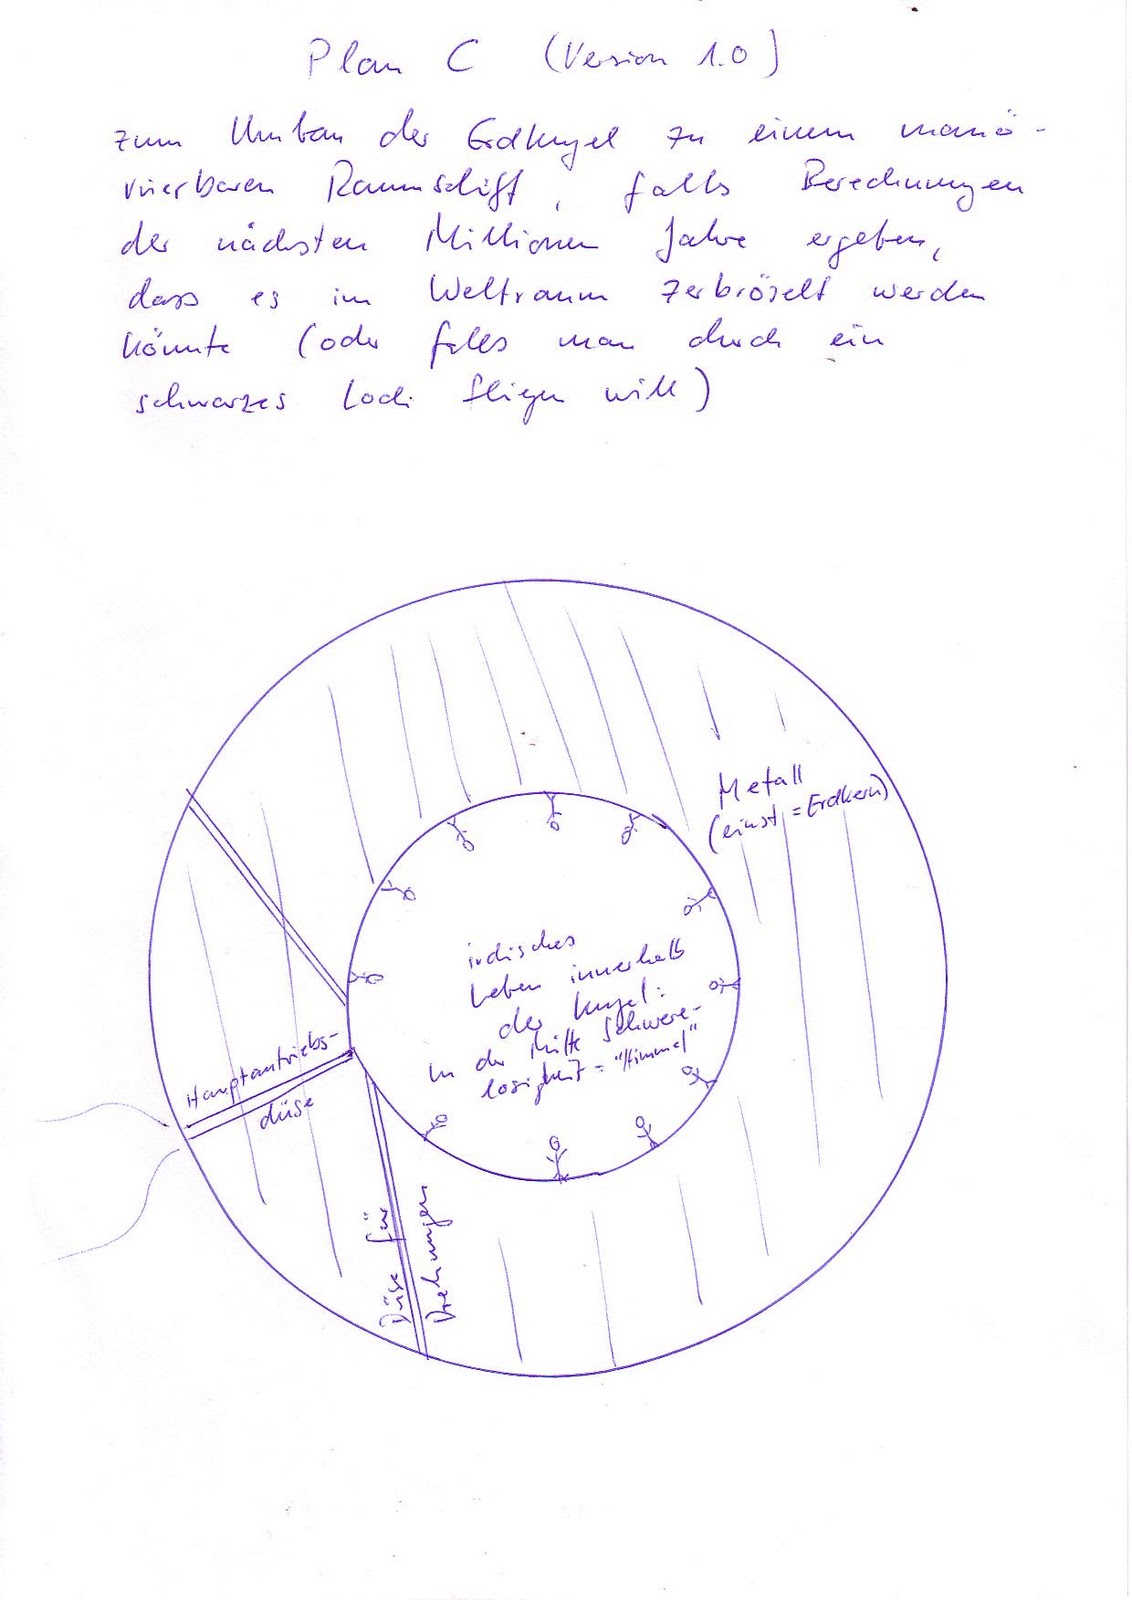 Plan C (Version 1.0)
zum Umbau der Erdkugel zu einem manö-
vrierbaren Raumschiff, falls Berechnungen
der nächsten Millionen Jahre ergeben,
dass es im Weltraum zerbröselt werden
könnte (oder falls man durch ein
schwarzes Loch fliegen will)
Metall
(einst = Erdkern)
irdisches
Leben innerhalb
der Kugel:
in der Mitte Schwere-
losigkeit = "Himmel"
Hauptantriebs-
düse
Düse für
Drehungen